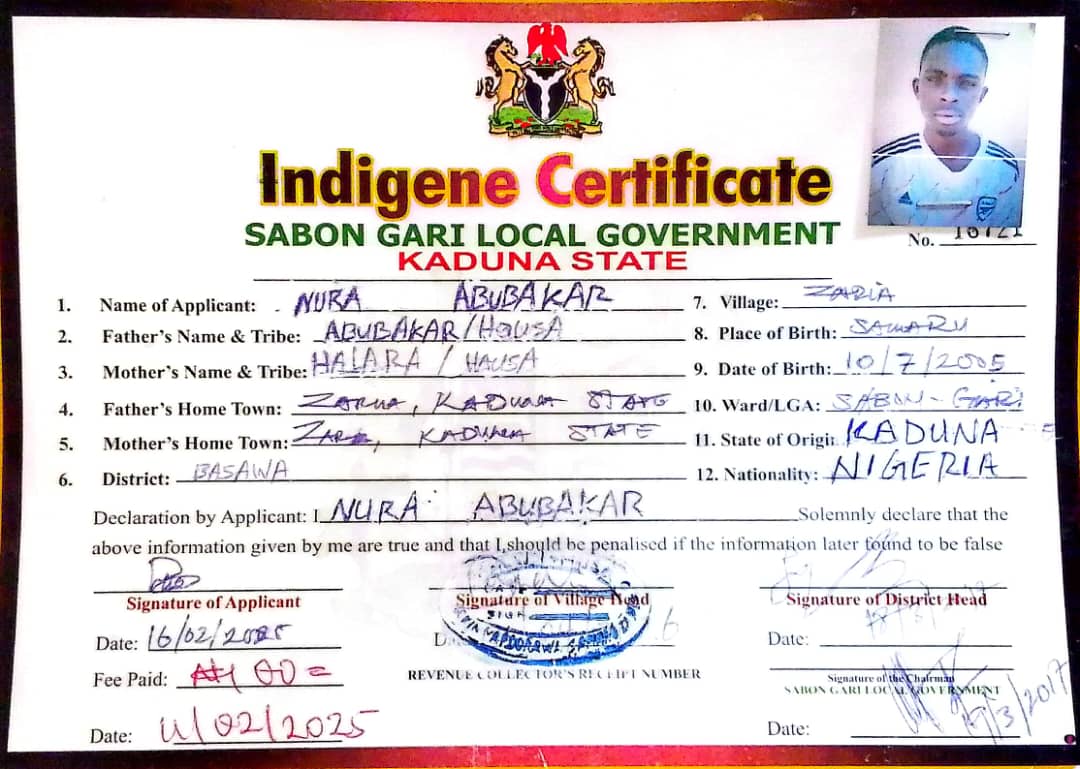 Indigene Certificate
SABON GARI LOCAL GOVERNMENT
KADUNA STATE
No. 16721
1. Name of Applicant: NURA ABUBAKAR
7. Village: ZARIA
2. Father's Name & Tribe: ABUBAKAR/HAUSA
8. Place of Birth: SAMARU
3. Mother's Name & Tribe: HALARA / HAUSA
9. Date of Birth: 10/7/2005
4. Father's Home Town: ZARIA, KADUNA STATE
10. Ward/LGA: SABON-GARI
5. Mother's Home Town: ZARIA, KADUNA STATE
11. State of Origin KADUNA
6. District: BASAWA
12. Nationality: NIGERIA
Declaration by Applicant: I NURA ABUBAKAR Solemnly declare that the
above information given by me are true and that I,should be penalised if the information later found to be false
Signature of Applicant
Signature of Village Head
Signature of District Head
Date: 16/02/2025
Date:
Fee Paid: 100=
REVENUE COLLECTOR'S RECEIPT NUMBER
Signature of the Chairman
SABON GARI LOCAL GOVERNMENT
/3/2017
Date: 11/02/2025
Date: